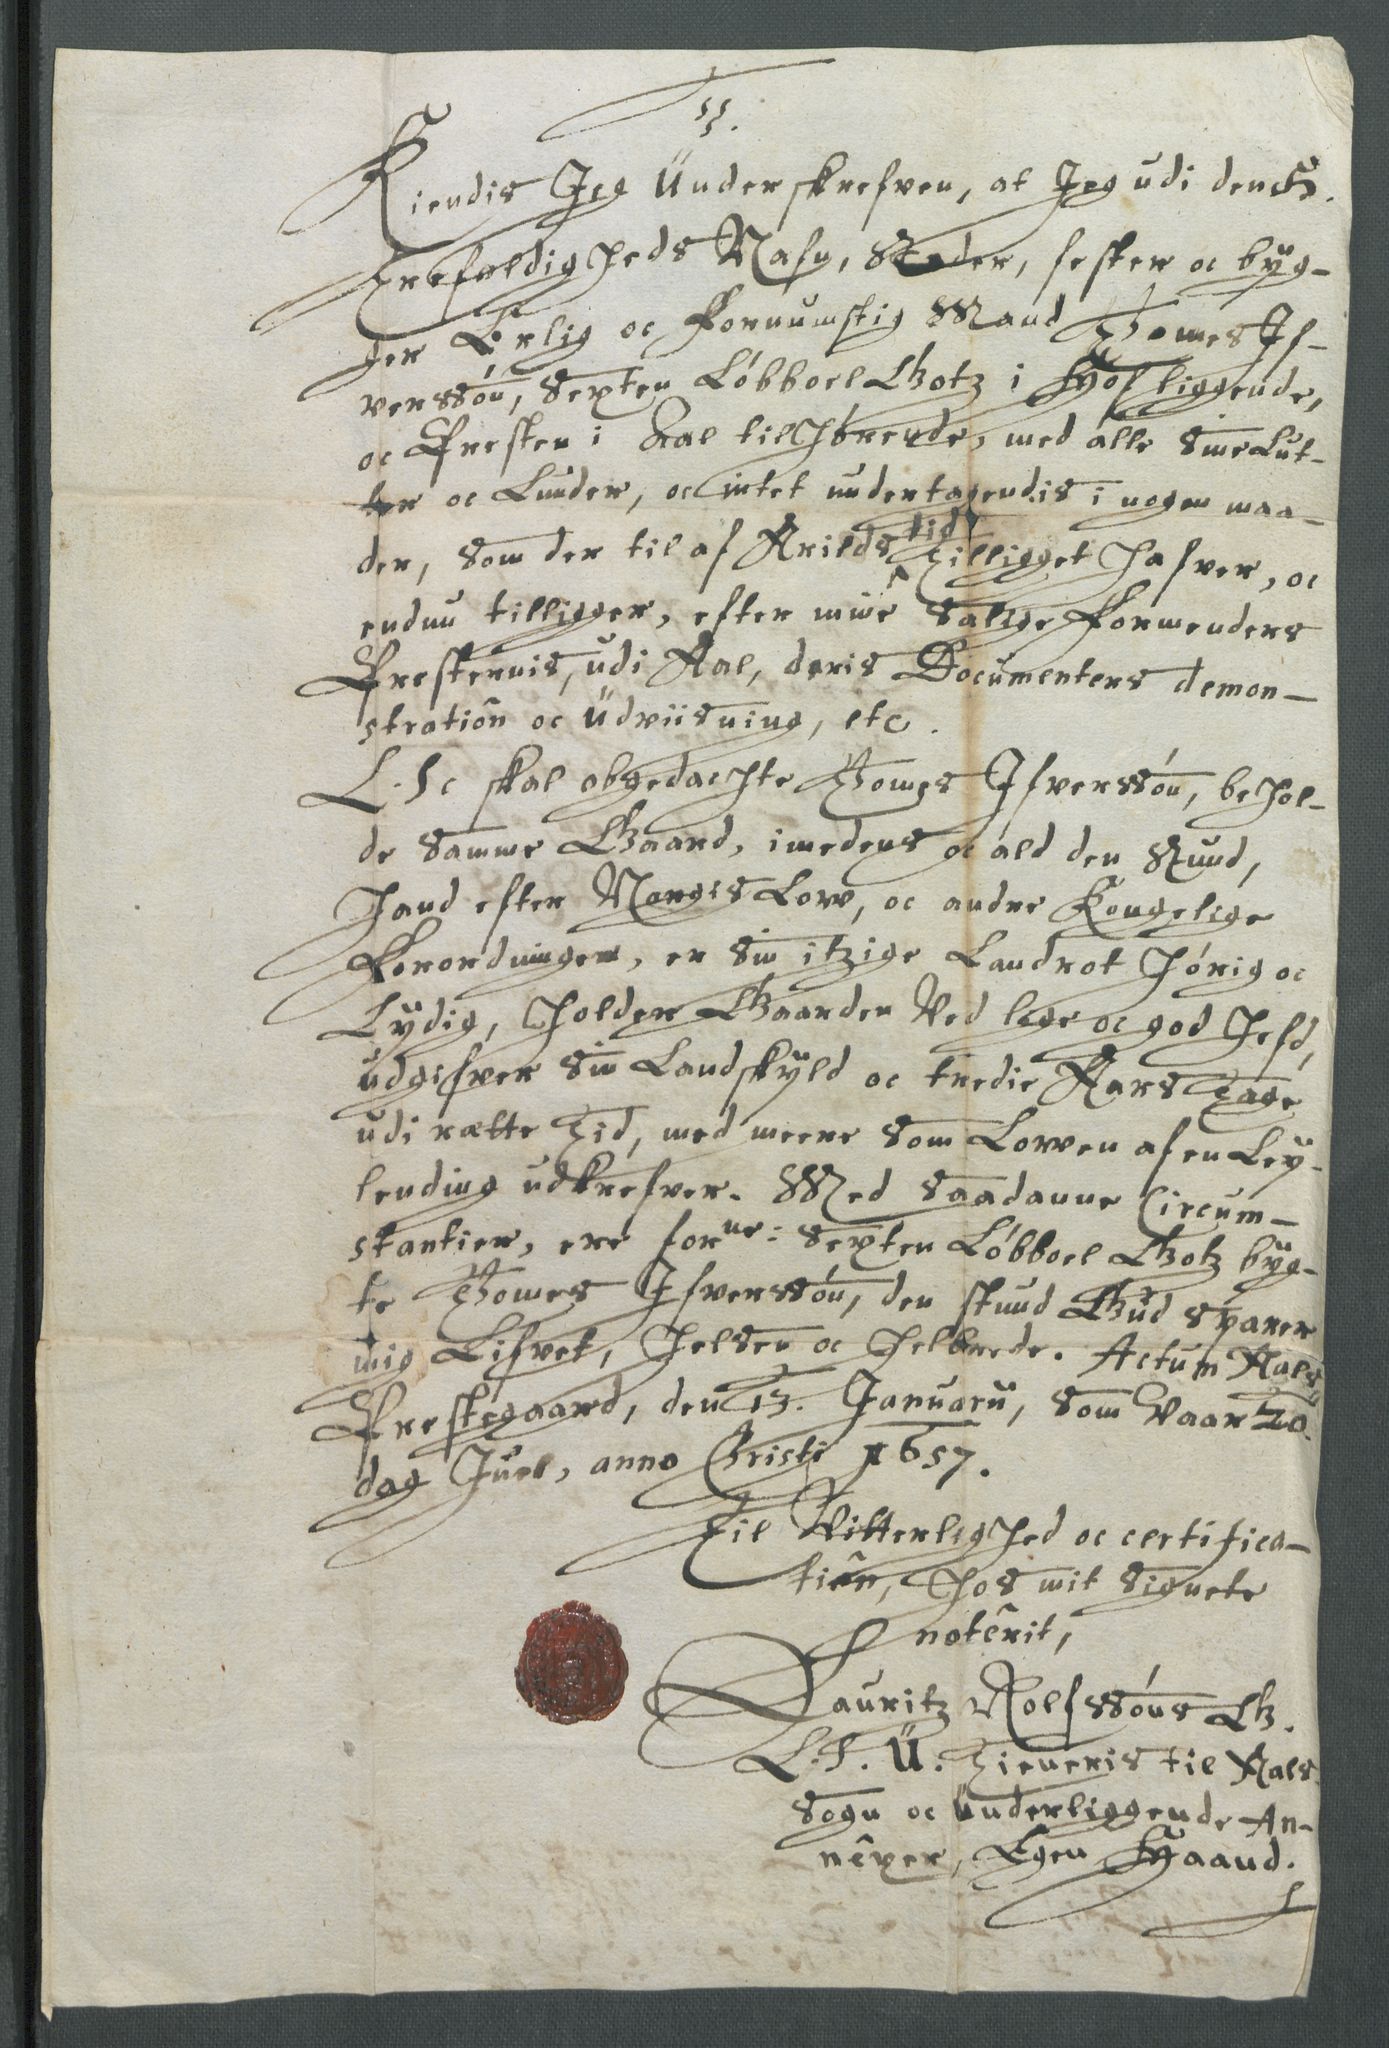 Kiendis Jeg Underskrefven, at Jeg udi den H.
Trefoldigheds Nafn, Steder, fester oc byg-
ger Erlig oc Fornumstig Mand Thomes If-
verssøn, Sexten Løbboel Gotz i Hof liggende,
oc Presten i Aal tilhørende, med alle sine Lut-
ter oc Lunder, oc intet undertagendis i nogen maa-
der, som der til af Arilds tid Tilligget hafver, oc
endnu tilligger, efter mine Salige Formenders
Presternis, udi Aal, deris Documenters demon-
stration oc Udviisning, etc.
skal obgedachte Thomes Ifverssøn, behol-
de samme Gaard, imedens oc ald den stund,
hand efter Norgis Low, oc andre Kongelige
Forordninger, er sin itzige Landrot hørig oc
Lydig, holder Gaarden Ved lige oc god hefd,
udgifver sin Landskyld oc tredie Aars Tage
udi rætte Tid, med meere som Lowen af en Ley-
lending udkrefver. Med saadanne Circum-
stantier, ere forne: Sexten Løbboel Gotz byg-
te Thomes Ifverssøn, den stund Gud sparer
mig Lifvet, helsen oc helbrede. Actum Aals
Prestegaard, den 13. Januarii, som Vaar 20.
dag Juel, anno Christi 1657.
Til Vitterlighed oc certifica-
tion, hos mit Signete
noterit,
Lauritz Rolfssøns G.
Tieneris til Aals
Sogn oc Underliggende An-
nexer, Egen Haand.